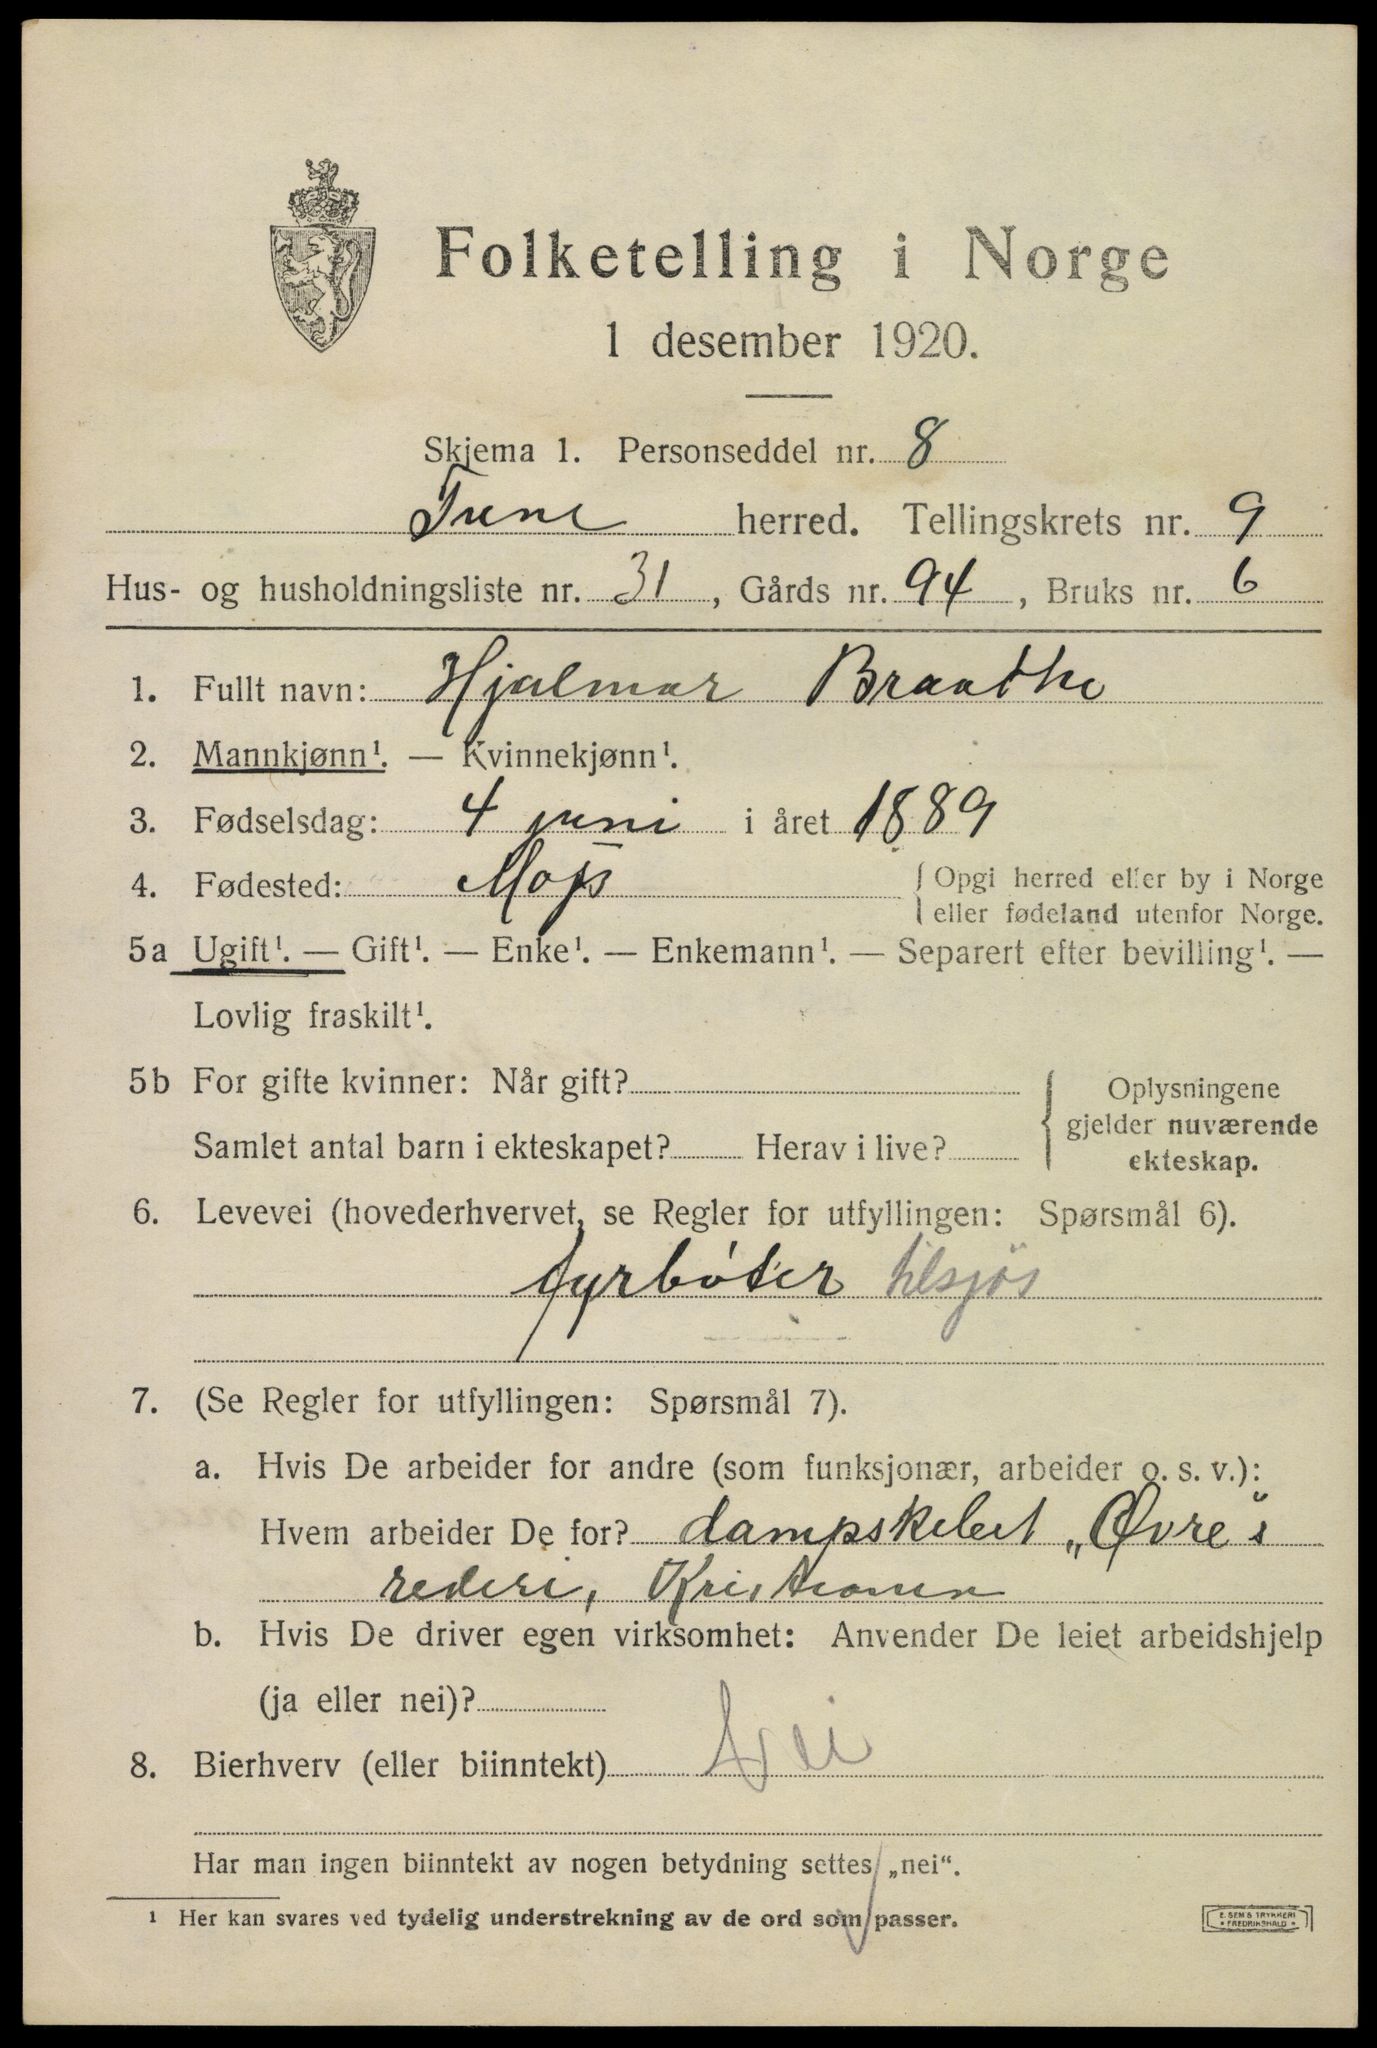 Folketelling i Norge
1 desember 1920.
Skjema 1. Personseddel nr. 8
Tune herred. Tellingskrets nr. 9
Hus- og husholdningsliste nr. 31, Gårds nr. 94, Bruks nr. 6
1. Fullt navn: Hjalmar Braathe
2. Mannkjønn¹. — Kvinnekjønn¹.
3. Fødselsdag: 4 juni i året 1889
4. Fødested: Moss { Opgi herred eller by i Norge
eller fødeland utenfor Norge.
5a Ugift¹. — Gift¹. — Enke¹. — Enkemann¹. — Separert efter bevilling¹. —
Lovlig fraskilt¹.
5b For gifte kvinner: Når gift? { Oplysningene
gjelder nuværende
Samlet antal barn i ekteskapet? Herav i live?
ekteskap.
6. Levevei (hovederhvervet, se Regler for utfyllingen: Spørsmål 6).
fyrbøter tilsjøs
7. (Se Regler for utfyllingen: Spørsmål 7).
a. Hvis De arbeider for andre (som funksjonær, arbeider o. s. v.):
Hvem arbeider De for? „Øvre"s
rederi,
b. Hvis De driver egen virksomhet: Anvender De leiet arbeidshjelp
(ja eller nei)?
8. Bierhverv (eller biinntekt) Nei
Har man ingen biinntekt av nogen betydning settes „nei".
¹ Her kan svares ved tydelig understrekning av de ord som passer.
E. SEM'S TRYKKERI
FREDRIKSHALD